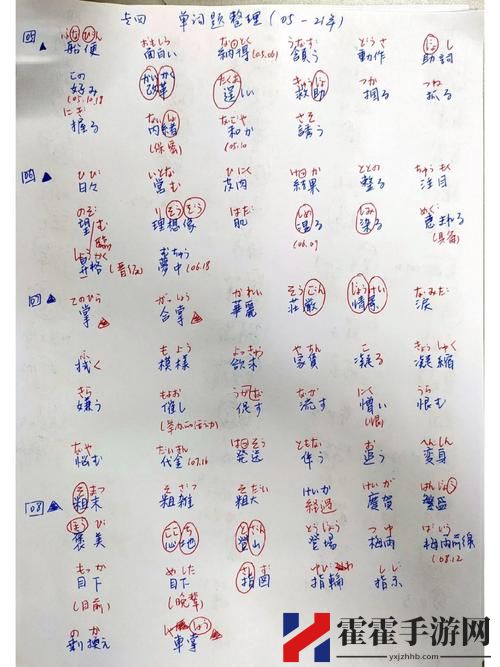 专四 单词题整理(05-21年)
05 ▲ ふなびん おもしろ なっとく うなず どうさ じょし
船便 面白い 納得(05.06) 頷う 動作 助詞
この かいかく たくま きゅうじょ つか つね
好み(05.10,19) 改革 逞しい 救助 掴る 抓る
にぎ ないしょ なごや さそ
握る 内緒(保密) 和か(05.10) 誘う
06 ▲ ひび いとな ひにく けっか ととの ちゅうもく
日々 営む 皮肉 結果 整る 注目
のぞ りそうぞう はだ しめ しみ めぐ
望む 臨 理想像 肌 湿る(06.09) 染る 恵まれる(具备)
しょうかく むちゅう
昇格(晋级) 夢中(06.18)
07 ▲ てのひら がっしょう かれい そうごん じょうけい なみだ
掌▲ 合掌▲ 華麗 荘厳 情景 涙
ふ もよう よっきゅう やちん こ ぎょうしゅく
拭く 模様 欲求 家賃 凝る 凝縮
きら もよお うなが なが にく うら
嫌う 催し 促す 流す 憎い(恨) 恨む
なや だいきん はっそう ともな お へんしん
悩む 代金(07.16) 発送 伴う 追う 変身
08 ▲ そまつ そざつ そだい けいが はんじょう
粗末 粗雑 粗大 経過 慶賀 繁盛
ほうび ここち とざん とうじょう つゆ ばいう
褒美 心地 登山 登場 梅雨 梅雨前線(08.12)
もっか めした さしず ゆびわ しじ
目下(目前) 目下(晚辈) 指図 指輪 指示
のか しゃしょう
剰換え 車掌
霍霍手游网
www.yxjzhhb.com